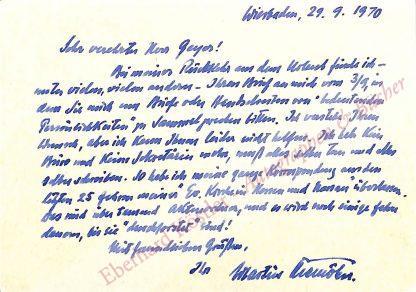 Wiesbaden, 29. 9. 1970
Sehr verehrter Herr Geyer!
Bei meiner Rückkehr aus dem Urlaub finde ich -
unter vielen, vielen andern - Ihren Brief an mich vom 3/9, in
dem Sie mich um Briefe oder Handschriften von "bedeutenden
Persönlichkeiten" zu Sammelzwecken bitten. Ich verstehe Ihren
Wunsch, aber ich kann Ihnen leider nicht helfen. Ich habe kein
Büro und keine Sekretärin mehr, muß alles selber tun und alles
selber schreiben. So habe ich meine ganze Korrespondenz aus den
letzten 25 Jahren meiner Ev. Kirche in Hessen und Nassau überlassen.
Das sind über tausend Aktenordner, und es wird noch einige Jahre
dauern, bis sie "durchforstet" sind!
Mit freundlichen Grüßen
Ihr Martin Niemöller
Eberhard Köstler Autographen Bücher